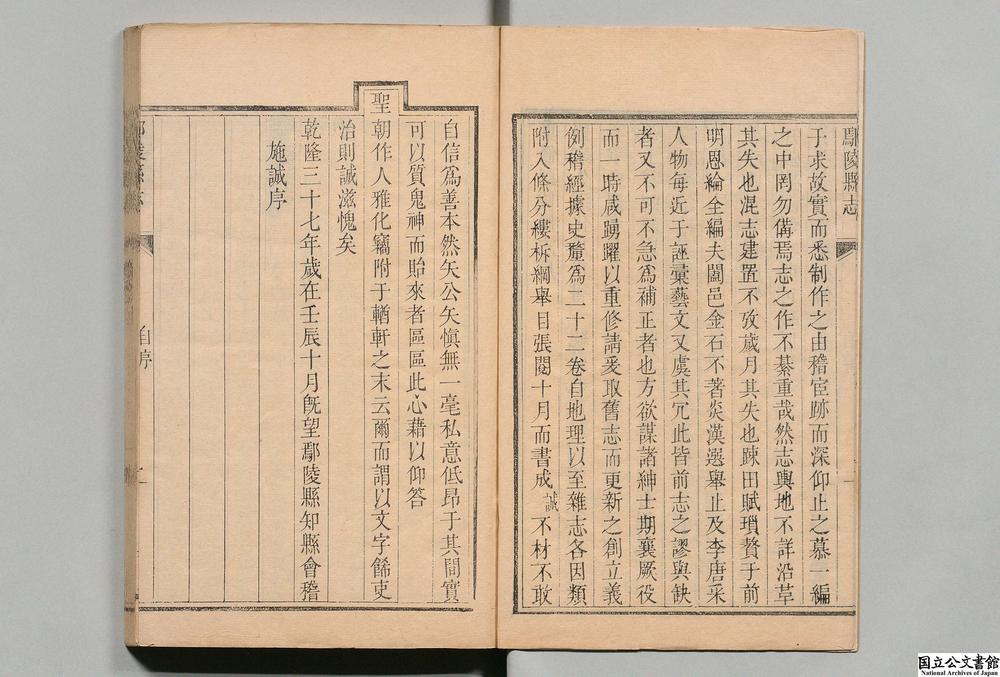 鄢陵縣志
于求故實而悉制作之由稽宦跡而深仰止之慕一編
之中罔勿僃焉志之作不綦重哉然志輿地不詳沿革
其失也混志建置不攷歲月其失也踈田賦瑣贅于前
明恩綸全編夫闔邑金石不著炎漢選舉止及李唐采
人物每近于誣彙藝文又虞其冗此皆前志之謬與缺
者又不可不急爲補正者也方欲謀諸紳士期襄厥役
而一時咸踴躍以重修請爰取舊志而更新之創立義
例稽經據史釐爲二十二卷自地理以至雜志各因類
附入條分縷柝綱舉目張閱十月而書成誠不材不敢
自信爲善本然矢公矢愼無一毫私意低昂于其間實
可以質鬼神而貽來者區區此心藉以仰答
聖朝作人雅化竊附于輶軒之末云爾而謂以文字餙吏
治則誠滋愧矣
乾隆三十七年歲在壬辰十月旣望鄢陵縣知縣會稽
施誠序
自序
二
国立公文書館
National Archives of Japan